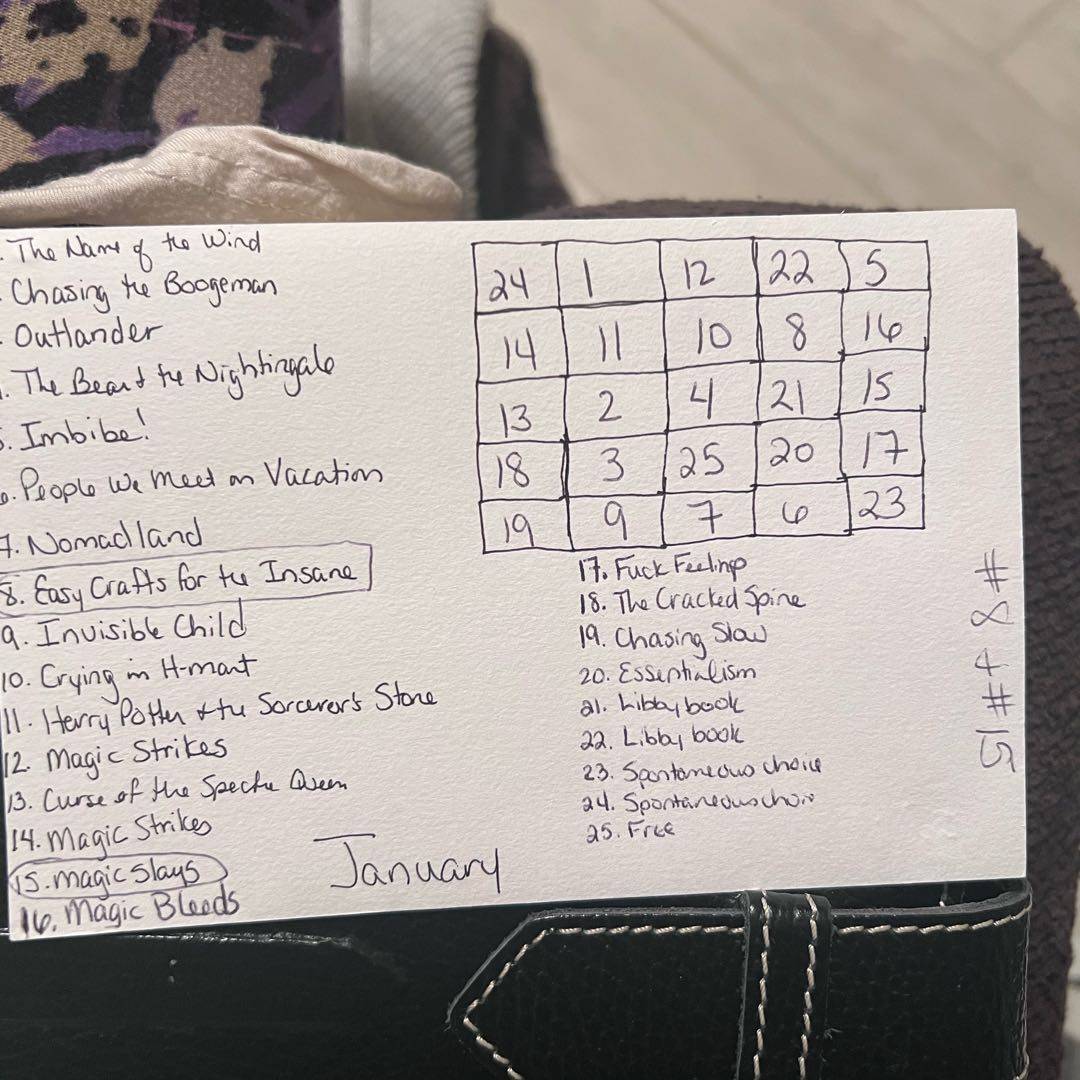 . The Name of the Wind
. Chasing the Boogeman
. Outlander
. The Bear & the Nightingale
5. Imbibe!
6. People We Meet on Vacation
7. Nomadland
8. Easy Crafts for the Insane
9. Invisible Child
10. Crying in H-mart
11. Harry Potter & the Sorcerer's Stone
12. Magic Strikes
13. Curse of the Specter Queen
14. Magic Strikes
15. magic slays
16. Magic Bleeds
January
24 1 12 22 5
14 11 10 8 16
13 2 4 21 15
18 3 25 20 17
19 9 7 6 23
17. Fuck Feelings
18. The Cracked Spine
19. Chasing Slow
20. Essentialism
21. Libby book
22. Libby book
23. Spontaneous choice
24. Spontaneous choice
25. Free
#8 + #15